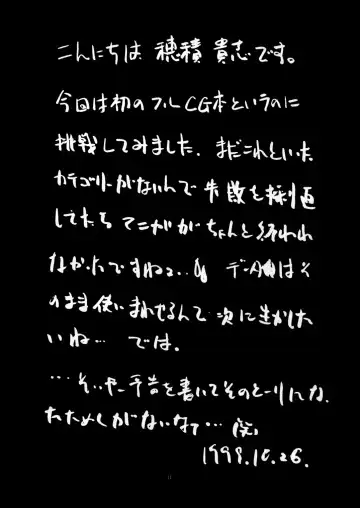 こんにちは 穂積 貴志です。
今回は初のフルCG本というのに
挑戦してみました。まだこれといった
カテゴリーがないんで失敗を採り直
してたら マニガがちょんと終われ
なかったですねぇ… データはそ
のまま使いまわせるんで次に生かした
いね… では。
…そいや 予告を書いてそのとーりにな
ためしがないなァ…
1998.10.26.